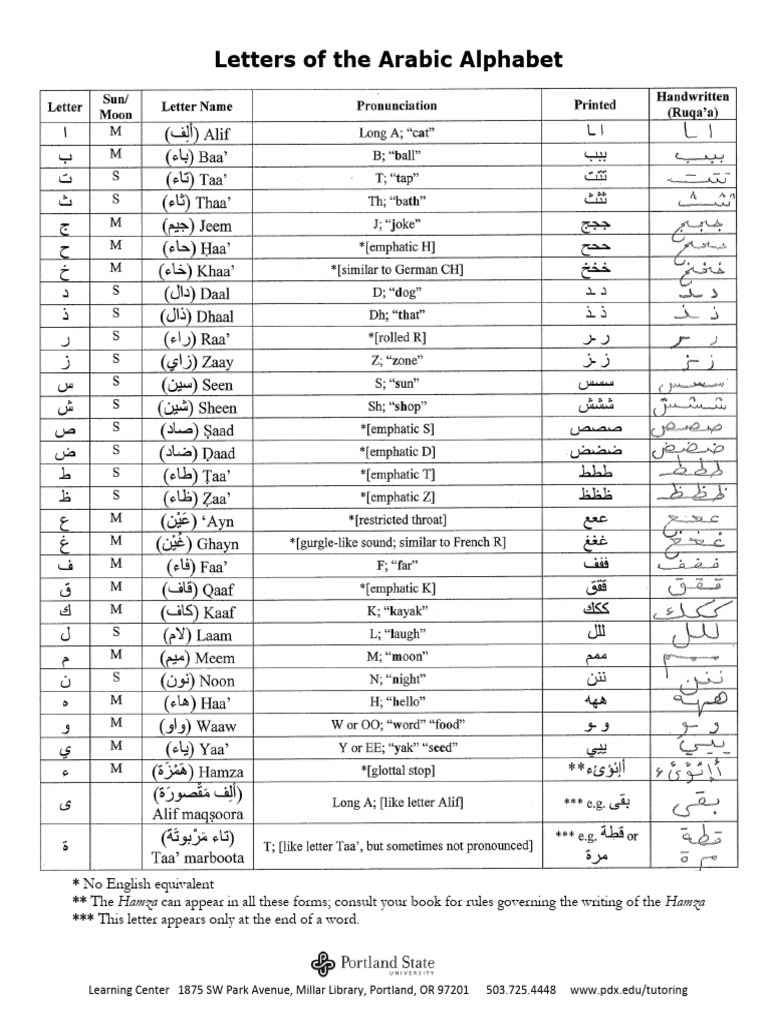 Letters of the Arabic Alphabet
Letter Sun/ Moon Letter Name Pronunciation Printed Handwritten (Ruqa'a)
ا M (أَلِف) Alif Long A; “cat” ا ـا ا ـا
ب M (باء) Baa’ B; “ball” ببب ببب
ت S (تاء) Taa’ T; “tap” تتت تتت
ث S (ثاء) Thaa’ Th; “bath” ثثث ثثث
ج M (جيم) Jeem J; “joke” ججج ججج
ح M (حاء) Ḥaa’ *[emphatic H] ححح ححح
خ M (خاء) Khaa’ *[similar to German CH] خخخ خخخ
د S (دال) Daal D; “dog” د ـد د ـد
ذ S (ذال) Dhaal Dh; “that” ذ ـذ ذ ـذ
ر S (راء) Raa’ *[rolled R] ر ـر ر ـر
ز S (زاي) Zaay Z; “zone” ز ـز ز ـز
س S (سين) Seen S; “sun” سسس سسس
ش S (شين) Sheen Sh; “shop” ششش ششش
ص S (صاد) Ṣaad *[emphatic S] صصص صصص
ض S (ضاد) Ḍaad *[emphatic D] ضضض ضضض
ط S (طاء) Ṭaa’ *[emphatic T] ططط ططط
ظ S (ظاء) Ẓaa’ *[emphatic Z] ظظظ ظظظ
ع M (عَيْن) ‘Ayn *[restricted throat] ععع ععع
غ M (غَيْن) Ghayn *[gurgle-like sound; similar to French R] غغغ غغغ
ف M (فاء) Faa’ F; “far” ففف ففف
ق M (قاف) Qaaf *[emphatic K] ققق ققق
ك M (كاف) Kaaf K; “kayak” ككك ككك
ل S (لام) Laam L; “laugh” للل للل
م M (ميم) Meem M; “moon” ممم ممم
ن S (نون) Noon N; “night” ننن ننن
ه M (هاء) Haa’ H; “hello” ههه ههه
و M (واو) Waaw W or OO; “word” “food” و ـو و ـو
ي M (ياء) Yaa’ Y or EE; “yak” “seed” ييي ييي
ء M (هَمْزَة) Hamza *[glottal stop] **
ى (أَلِف مَقْصورَة) Alif maqṣoora Long A; [like letter Alif] *** e.g. بقى بقى
ة (تاء مَرْبوتَة) Taa’ marboota T; [like letter Taa’, but sometimes not pronounced] *** e.g. قطة or مرة قطة مرة
* No English equivalent
** The Hamza can appear in all these forms; consult your book for rules governing the writing of the Hamza
*** This letter appears only at the end of a word.
Portland State
UNIVERSITY
Learning Center 1875 SW Park Avenue, Millar Library, Portland, OR 97201 503.725.4448 www.pdx.edu/tutoring